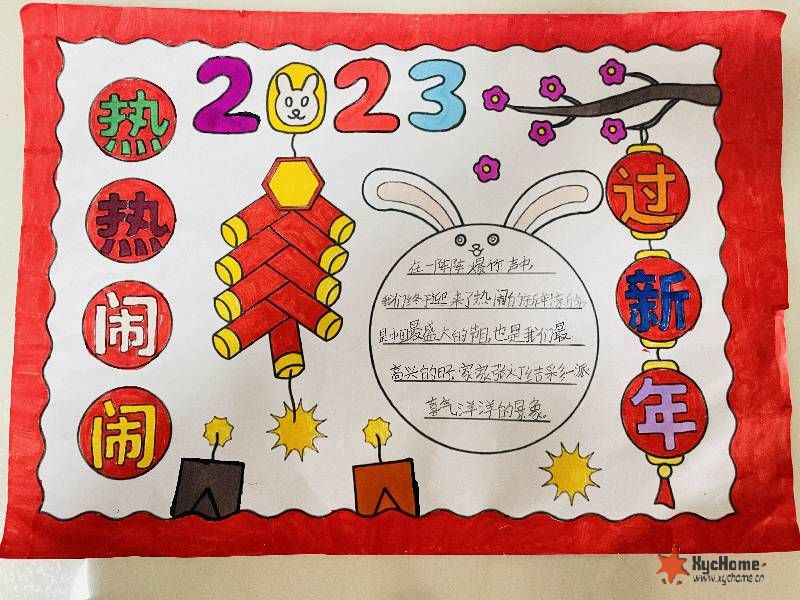 热热闹闹
2023
过新年
在一阵阵爆竹声中
我们终于迎来了热闹的新年!新年
是中国最盛大的节日,也是我们最
高兴的日子,家家张灯结彩,一派
喜气洋洋的景象。
XycHome
www.xychome.cn